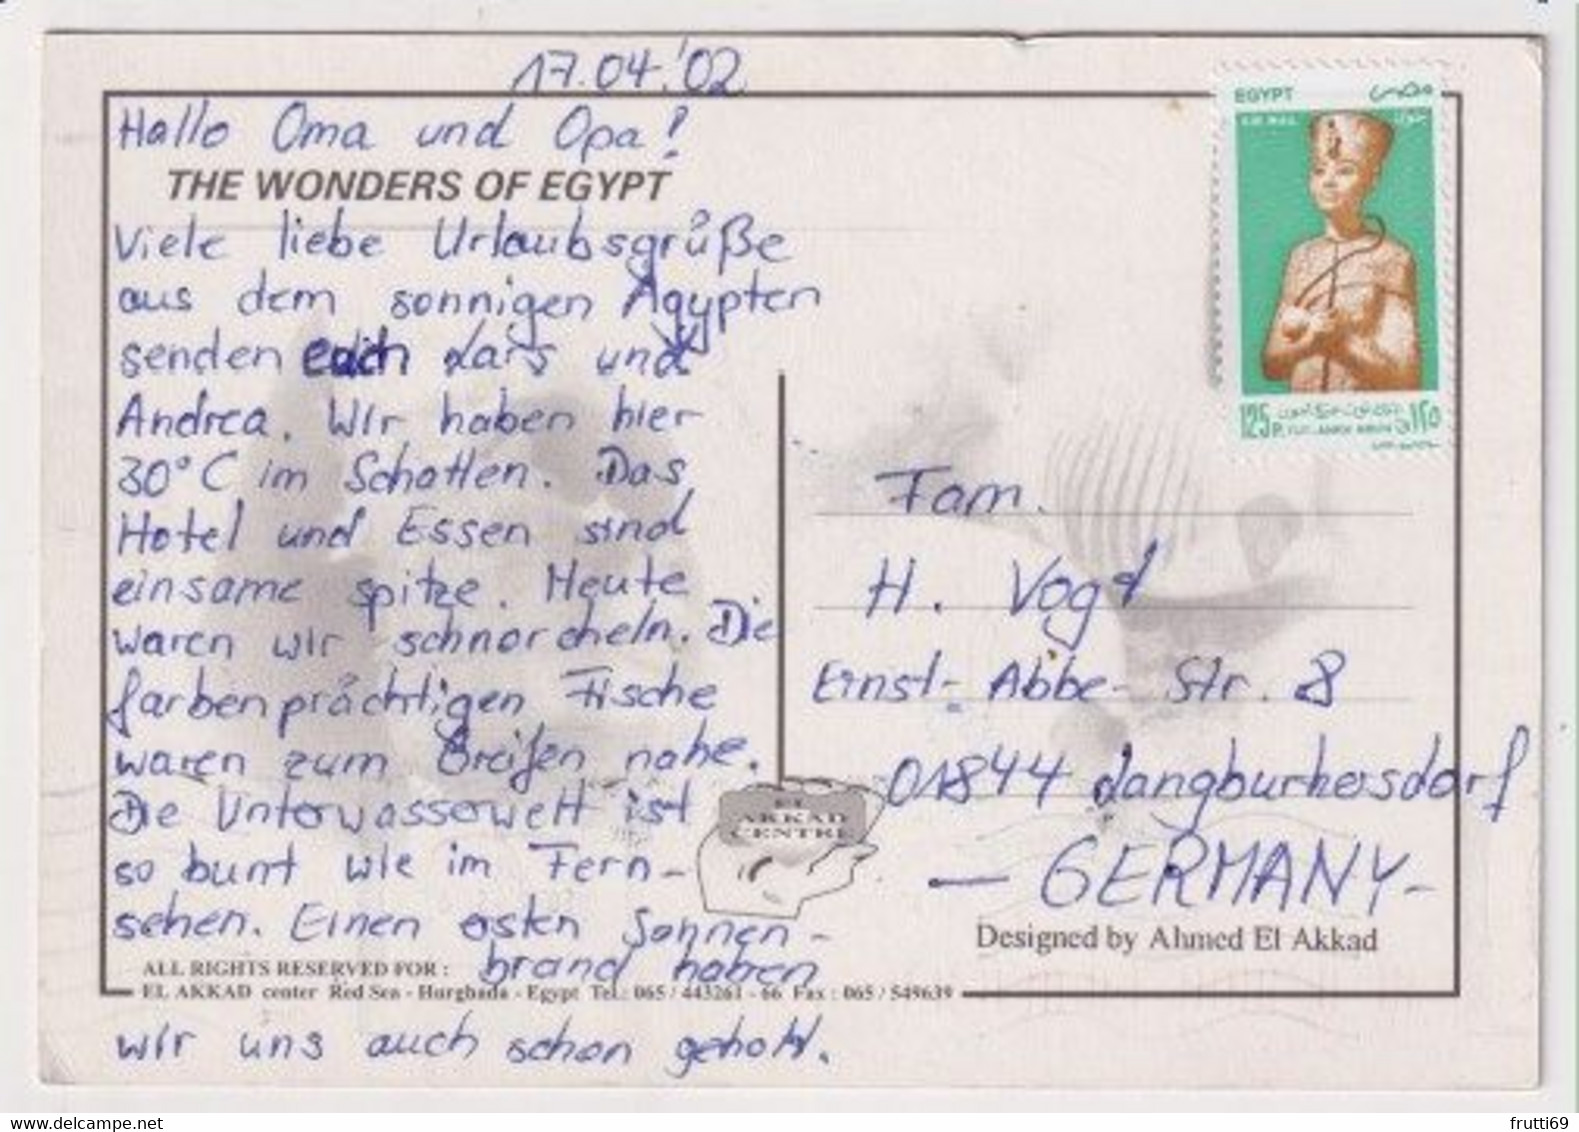 17.04.'02
Hallo Oma und Opa!
THE WONDERS OF EGYPT
Viele liebe Urlaubsgrüße
aus dem sonnigen Ägypten
senden euch Lars und
Andrea. Wir haben hier
30°C im Schatten. Das
Hotel und Essen sind
einsame spitze. Heute
waren wir schnorcheln. Die
farbenprächtigen Fische
waren zum Greifen nahe.
Die Unterwasserwelt ist
so bunt wie im Fern-
sehen. Einen ersten Sonnen-
brand haben
wir uns auch schon geholt.
ALL RIGHTS RESERVED FOR :
EL AKKAD center Red Sea - Hurghada - Egypt Tel.: 065 / 443261 - 66 Fax : 065 / 549639
EL
AKKAD
CENTRE
EGYPT مصر
AIR MAIL
125 P. TUT-ANKH-AMUN ١٢٥
Fam.
H. Vogt
Ernst-Abbe-Str. 8
01844 Langburkersdorf
— GERMANY -
Designed by Ahmed El Akkad
frutti69